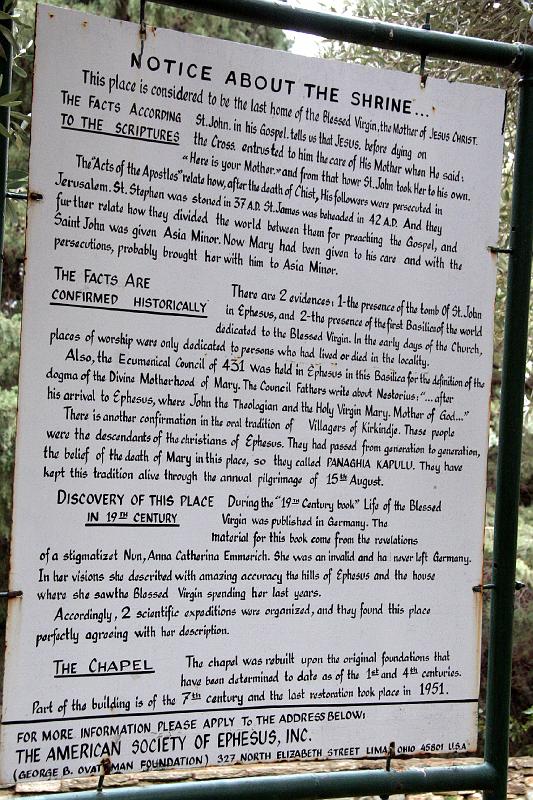 NOTICE ABOUT THE SHRINE...
This place is considered to be the last home of the Blessed Virgin, the Mother of JESUS CHRIST.
THE FACTS ACCORDING
TO THE SCRIPTURES
St. John, in his Gospel, tells us that JESUS, before dying on
the Cross, entrusted to him the care of His Mother when He said:
«Here is your Mother.» and from that howr St. John took Her to his own.
The "Acts of the Apostles" relate how, after the death of Chist, His followers were persecuted in
Jerusalem. St. Stephen was stoned in 37 A.D. St. James was beheaded in 42 A.D. And they
further relate how they divided the world between them for preaching the Gospel, and
Saint John was given Asia Minor. Now Mary had been given to his care and with the
persecutions, probably brought her with him to Asia Minor.
THE FACTS ARE
CONFIRMED HISTORICALLY
There are 2 evidences: 1-the presence of the tomb Of St. John
in Ephesus, and 2-the presence of the first Basilica of the world
dedicated to the Blessed Virgin. In the early days of the Church,
places of worship were only dedicated to persons who had lived or died in the locality.
Also, the Ecumenical Council of 431 was held in Ephesus in this Basilica for the definition of the
dogma of the Divine Motherhood of Mary. The Council Fathers write about Nestorius: "... after
his arrival to Ephesus, where John the Theologian and the Holy Virgin Mary. Mother of God..."
There is another confirmation in the oral tradition of Villagers of Kirkindje. These people
were the descendants of the christians of Ephesus. They had passed from generation to generation,
the belief of the death of Mary in this place, so they called PANAGHIA KAPULU. They have
kept this tradition alive through the annual pilgrimage of 15th August.
DISCOVERY OF THIS PLACE
IN 19TH CENTURY
During the "19th Century book" Life of the Blessed
Virgin was published in Germany. The
material for this book come from the revelations
of a stigmatizet Nun, Anna Catherina Emmerich. She was an invalid and ha never left Germany.
In her visions she described with amazing accuracy the hills of Ephesus and the house
where she saw the Blessed Virgin spending her last years.
Accordingly, 2 scientific expeditions were organized, and they found this place
perfectly agreeing with her description.
THE CHAPEL
The chapel was rebuilt upon the original foundations that
have been determined to date as of the 1st and 4th centuries.
Part of the building is of the 7th century and the last restoration took place in 1951.
FOR MORE INFORMATION PLEASE APPLY TO THE ADDRESS BELOW:
THE AMERICAN SOCIETY OF EPHESUS, INC.
(GEORGE B. FOUNDATION) 327 NORTH ELIZABETH STREET LIMA, OHIO 45801 U.S.A